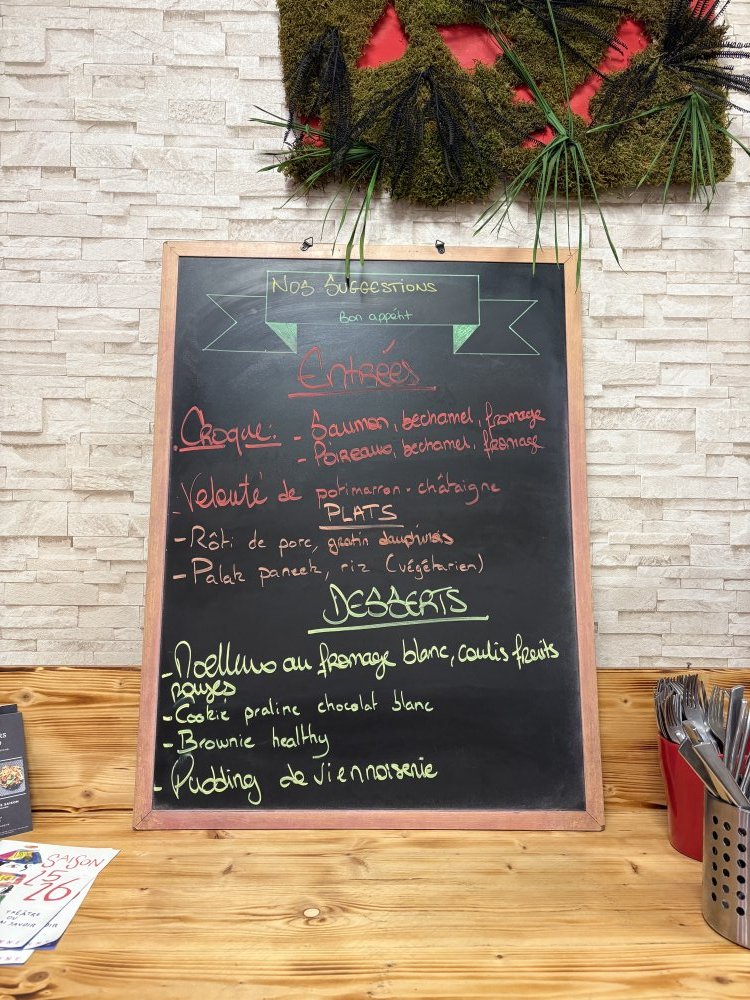 Nos Suggestions
Bon appétit
Entrées
Croque: - Saumon, bechamel, fromage
- Poireaux, bechamel, fromage
- Velouté de potimarron - châtaigne
PLATS
- Rôti de porc, gratin dauphinois
- Palak paneek, riz (végétarien)
DESSERTS
- Moelleux au fromage blanc, coulis fruits
rouges
- Cookie praline chocolat blanc
- Brownie healthy
- Pudding de viennoiserie
SAISON
25
26
THÉÂTRE
DU